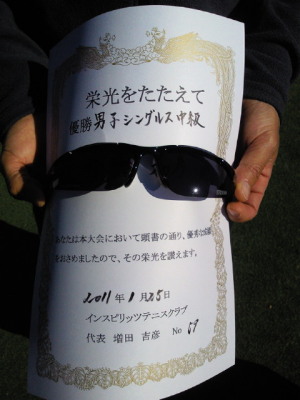 栄光をたたえて
優勝男子シングルス中級
あなたは本大会において頭書の通り、優秀な成績
をおさめましたので、その栄光を讃えます。
2011年1月25日
インスピリッツテニスクラブ
代表 増田 吉彦 No 57